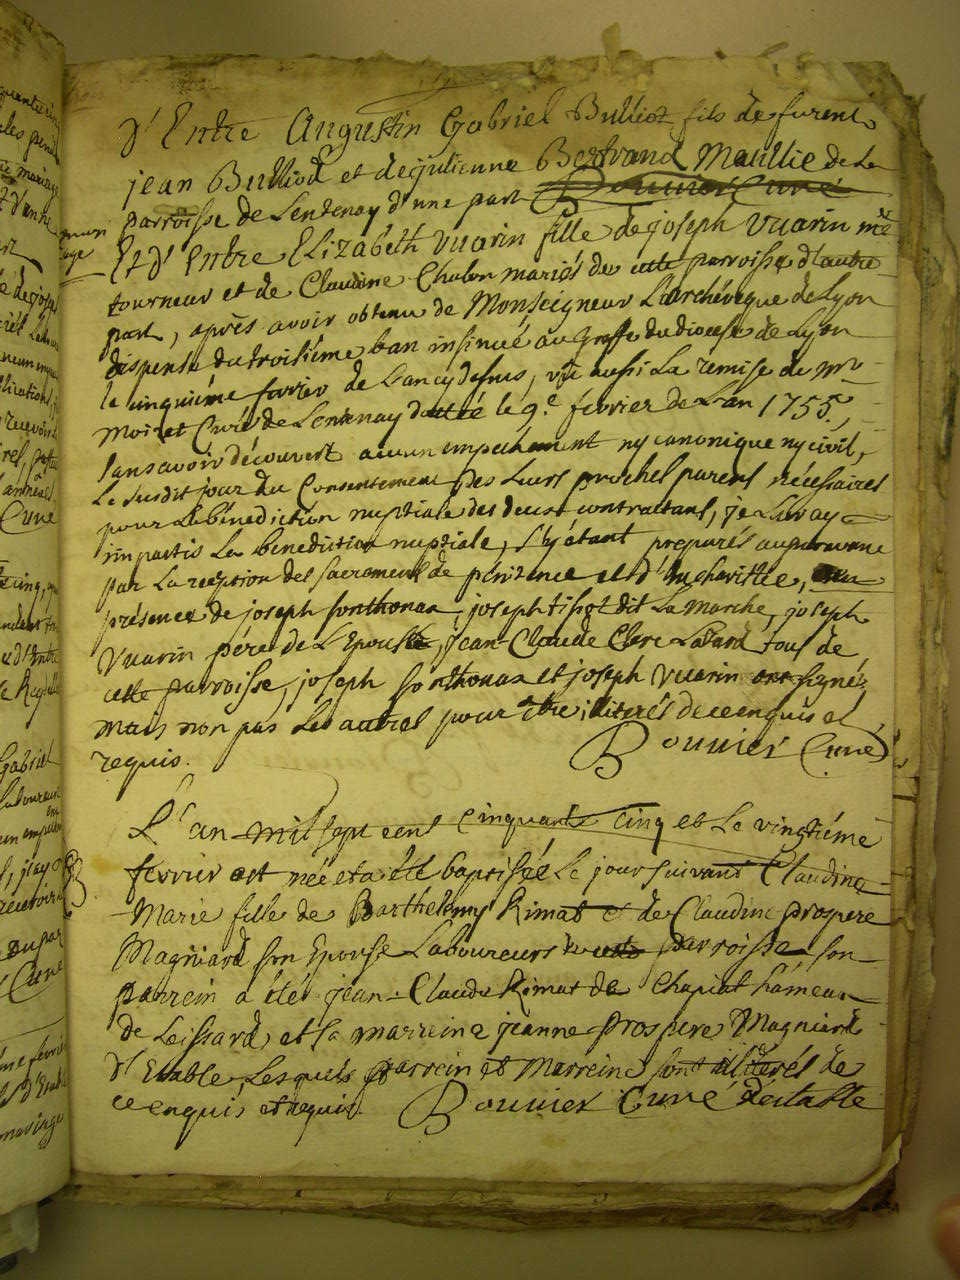 d'Entre Augustin Gabriel Bulliot fils de furent
jean Bulliod et de julienne Bertrand Matillie de La
parroisse de Lentenay d'une part Bouvier Curé
Et d'Entre Elizabeth Vuarin fille de joseph Vuarin me
tourneur et de Claudine Chalon mariés de cette parroisse d'autre
part, après avoir obtenu de Monseigneur L'archévêque de Lyon
dispense du troisiéme ban insinuée au Greffe du diocese de Lyon
le cinquiéme fevrier de L'an cy desus, vüe aussi La remise de mr
Moiret Curé de Lentenay dattée le 9e fevrier de L'an 1755,
sans avoir découvert aucun empechement ny canonique ny civil,
Le susdit jour du Consentement des Leurs proches parens nécéssaires
pour La bénédiction nuptiale des deux contractans, je Leur ay
imparti La bénédiction nuptiale, s'y étant preparés auparavant
par La reception des sacremens de pénitence et d'Eucharittie, en
présence de joseph sonthonax, joseph tissot dit La marche, joseph
Vuarin pére de L'Epouse, jean-Claude Clerc tous de
cette parroisse, joseph sonthonax et joseph Vuarin ont signé,
mais non pas Les autres pour être ilitérés de ce enquis et
requis. Bouvier Curé
L'an mil sept cent Cinquante Cinq et Le vingtiéme
fevrier est née et a été baptisée Le jour suivant Claudine
Marie fille de Barthelemy Rimat et de Claudine prospere
Magniard son Epouse Laboureurs de cette parroisse son
parrein a été jean-Claude Rimat de Chapiat hameau
de Leissard, et sa marreine jeanne prospere Magniard
d'Etable, Lesquels parrein et Marreine sont ilitérés de
ce enquis et requis. Bouvier Curé d'etable